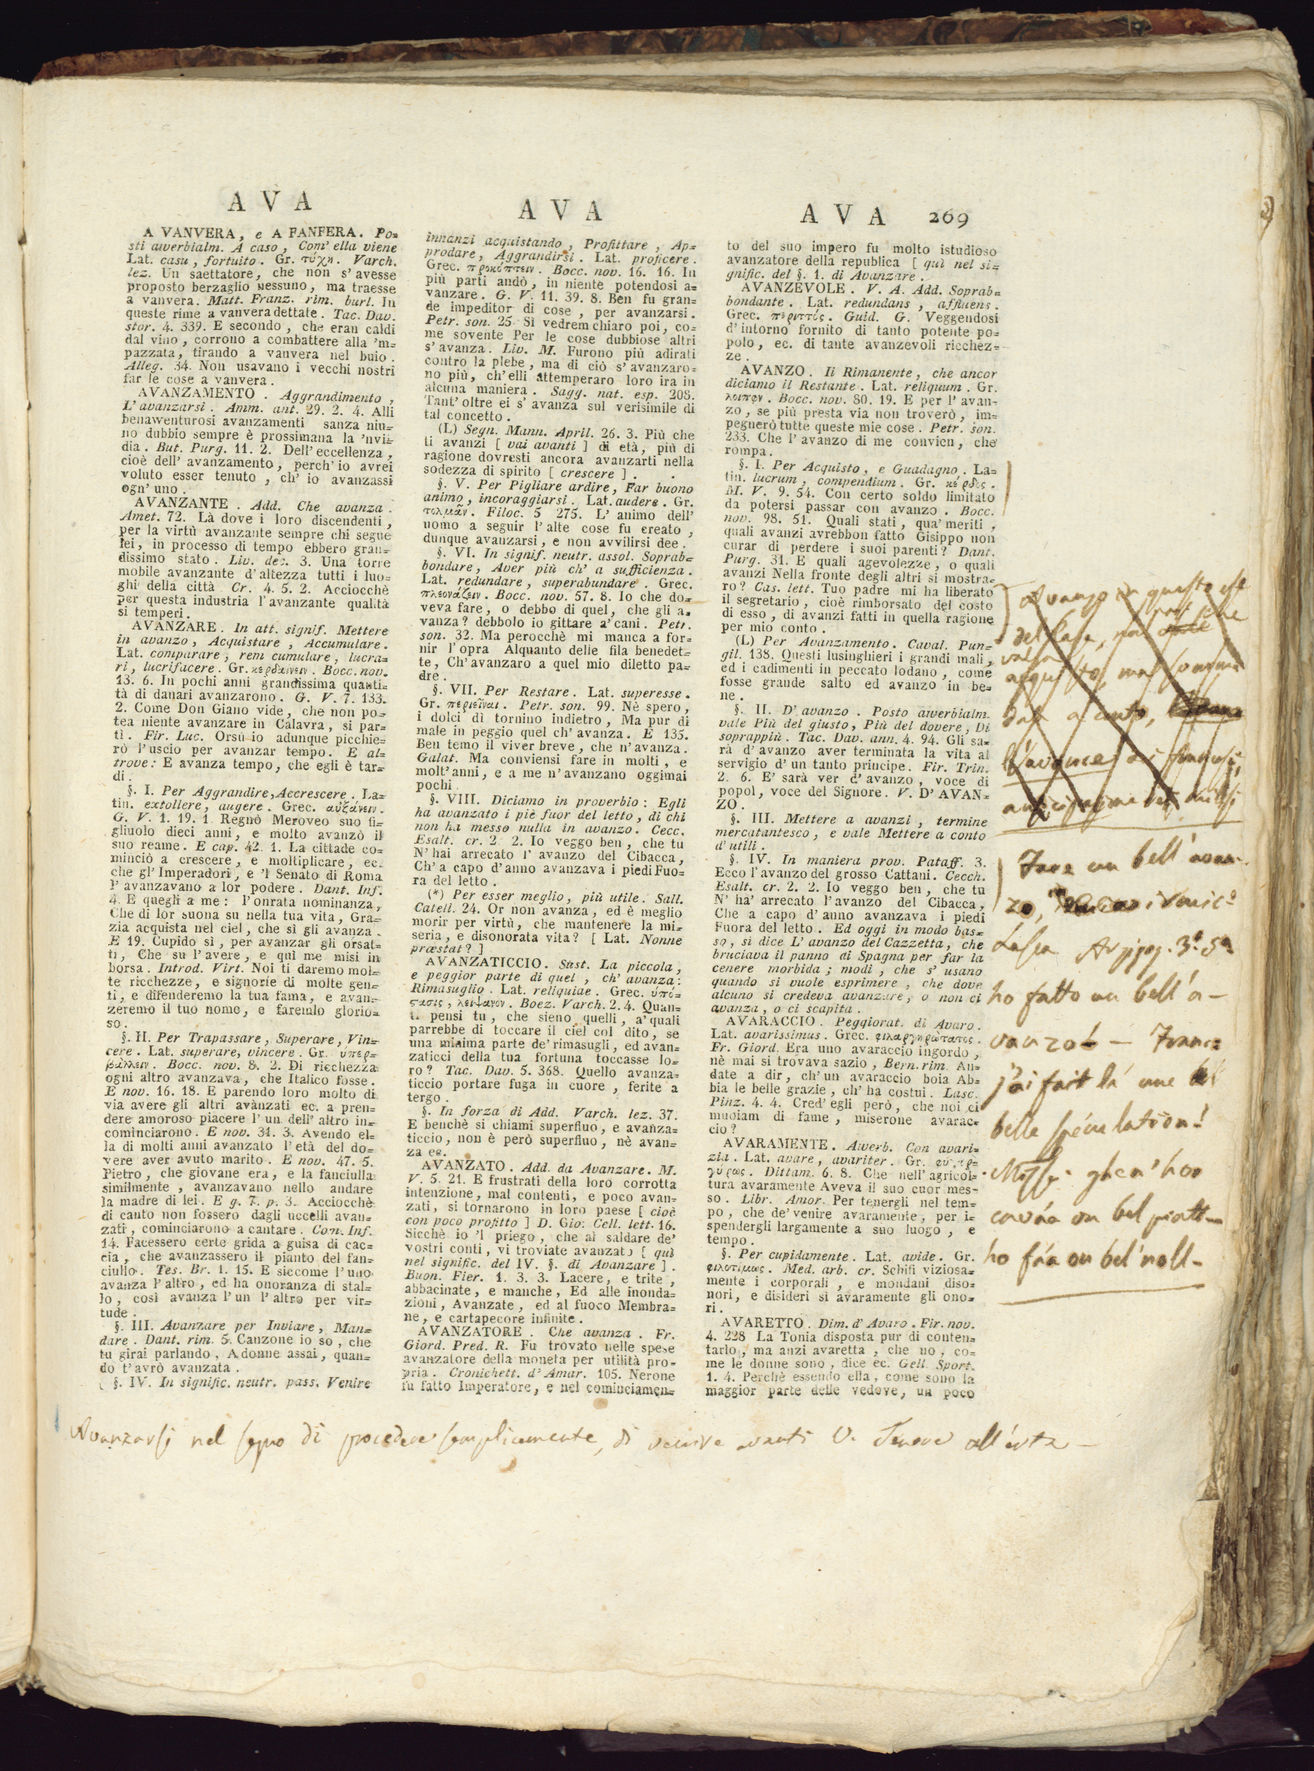 AVA
A VANVERA, e A FANFERA. Po=
sti avverbialm. A caso, Com' ella viene
Lat. casu, fortuito. Gr. τύχῃ. Varch.
lez. Un saettatore, che non s'avesse
proposto berzaglio nessuno, ma traesse
a vanvera. Matt. Franz. rim. burl. In
queste rime a vanvera dettate. Tac. Dav.
stor. 4. 339. E secondo, che eran caldi
dal vino, corrono a combattere alla 'm=
pazzata, tirando a vanvera nel buio.
Alleg. 34. Non usavano i vecchi nostri
far le cose a vanvera.
AVANZAMENTO. Aggrandimento,
L'avanzarsi. Amm. ant. 29. 2. 4. Alli
benavventurosi avanzamenti sanza niu=
no dubbio sempre è prossimana la 'nvi=
dia. But. Purg. 11. 2. Dell'eccellenza,
cioè dell' avanzamento, perch'io avrei
voluto esser tenuto, ch' io avanzassi
ogn' uno.
AVANZANTE. Add. Che avanza.
Amet. 72. Là dove i loro discendenti,
per la virtù avanzante sempre chi segue
lei, in processo di tempo ebbero gran=
dissimo stato. Liv. dec. 3. Una torre
mobile avanzante d'altezza tutti i luo=
ghi della città Cr. 4. 5. 2. Acciocchè
per questa industria l'avanzante qualità
si temperi.
AVANZARE. In att. signif. Mettere
in avanzo, Acquistare, Accumulare.
Lat. comparare, rem cumulare, lucra=
ri, lucrifacere. Gr. κερδαίνειν. Bocc. nov.
13. 6. In pochi anni grandissima quanti=
tà di danari avanzarono. G. V. 7. 133.
2. Come Don Giano vide, che non po=
tea niente avanzare in Calavra, si par=
tì. Fir. Luc. Orsù io adunque picchie=
rò l'uscio per avanzar tempo. E al=
trove: E avanza tempo, che egli è tar=
di.
§. I. Per Aggrandire, Accrescere. La=
tin. extollere, augere. Grec. αὐξάνειν.
G. V. 1. 19. 1. Regnò Meroveo suo fi=
gliuolo dieci anni, e molto avanzò il
suo reame. E cap. 42. 1. La cittade co=
minciò a crescere, e moltiplicare, ec.
che gl'Imperadori, e 'l Senato di Roma
l'avanzavano a lor podere. Dant. Inf.
4. E quegli a me: l'onrata nominanza,
Che di lor suona su nella tua vita, Gra=
zia acquista nel ciel, che sì gli avanza.
E 19. Cupido sì, per avanzar gli orsat=
ti, Che su l'avere, e qui me misi in
borsa. Introd. Virt. Noi ti daremo mol=
te ricchezze, e signorie di molte gen=
ti, e difenderemo la tua fama, e avan=
zeremo il tuo nome, e faremlo glorio=
so.
§. II. Per Trapassare, Superare, Vin=
cere. Lat. superare, vincere. Gr. ὑπερ=
βάλλειν. Bocc. nov. 8. 2. Di ricchezza
ogni altro avanzava, che Italico fosse.
E nov. 16. 18. E parendo loro molto di
via avere gli altri avanzati ec. a pren=
dere amoroso piacere l'un dell'altro in=
cominciarono. E nov. 31. 3. Avendo el=
la di molti anni avanzato l'età del do=
vere aver avuto marito. E nov. 47. 5.
Pietro, che giovane era, e la fanciulla
similmente, avanzavano nello andare
la madre di lei. E g. 7. p. 3. Acciocchè
di canto non fossero dagli uccelli avan=
zati, cominciarono a cantare. Com. Inf.
14. Facessero certo grida a guisa di cac=
cia, che avanzassero il pianto del fan=
ciullo. Tes. Br. 1. 15. E siccome l'uno
avanza l'altro, ed ha onoranza di stal=
lo, così avanza l'un l'altro per vir=
tude.
§. III. Avanzare per Inviare, Man=
dare. Dant. rim. 5. Canzone io so, che
tu girai parlando, A donne assai, quan=
do t'avrò avanzata.
§. IV. In signific. neutr. pass. Venire
AVA
innanzi acquistando, Profittare, Ap=
prodare, Aggrandirsi. Lat. proficere.
Grec. προκόπτειν. Bocc. nov. 16. 16. In
più parti andò, in niente potendosi a=
vanzare. G. V. 11. 39. 8. Ben fu gran=
de impeditor di cose, per avanzarsi.
Petr. son. 25. Sì vedrem chiaro poi, co=
me sovente Per le cose dubbiose altri
s'avanza. Liv. M. Furono più adirati
contro la plebe, ma di ciò s'avanzaro=
no più, ch'elli attemperaro loro ira in
alcuna maniera. Sagg. nat. esp. 208.
Tant'oltre ei s'avanza sul verisimile di
tal concetto.
(L) Segn. Mann. April. 26. 3. Più che
ti avanzi [ vai avanti ] di età, più di
ragione dovresti ancora avanzarti nella
sodezza di spirito [ crescere ].
§. V. Per Pigliare ardire, Far buono
animo, incoraggiarsi. Lat. audere. Gr.
τολμᾶν. Filoc. 5 275. L'animo dell'
uomo a seguir l'alte cose fu creato,
dunque avanzarsi, e non avvilirsi dee.
§. VI. In signif. neutr. assol. Soprab=
bondare, Aver più ch' a sufficienza.
Lat. redundare, superabundare. Grec.
πλεονάζειν. Bocc. nov. 57. 8. Io che do=
veva fare, o debbo di quel, che gli a=
vanza? debbolo io gittare a'cani. Petr.
son. 32. Ma perocchè mi manca a for=
nir l'opra Alquanto delle fila benedet=
te, Ch'avanzaro a quel mio diletto pa=
dre.
§. VII. Per Restare. Lat. superesse.
Gr. περιεῖναι. Petr. son. 99. Nè spero,
i dolci dì tornino indietro, Ma pur di
male in peggio quel ch'avanza. E 135.
Ben temo il viver breve, che n'avanza.
Galat. Ma conviensi fare in molti, e
molt'anni, e a me n'avanzano oggimai
pochi.
§. VIII. Diciamo in proverbio: Egli
ha avanzato i piè fuor del letto, di chi
non ha messo nulla in avanzo. Cecc.
Esalt. cr. 2. 2. Io veggo ben, che tu
N'hai arrecato l'avanzo del Cibacca,
Ch'a capo d'anno avanzava i piedi Fuo=
ra del letto.
(*) Per esser meglio, più utile. Sall.
Catell. 24. Or non avanza, ed è meglio
morir per virtù, che mantenere la mi=
seria, e disonorata vita? [ Lat. Nonne
præstat? ]
AVANZATICCIO. Sust. La piccola,
e peggior parte di quel, ch'avanza:
Rimasuglio. Lat. reliquiae. Grec. ὑπό=
στασις, λείψανον. Boez. Varch. 2. 4. Quan=
ti pensi tu, che sieno quelli, a'quali
parrebbe di toccare il ciel col dito, se
una minima parte de'rimasugli, ed avan=
zaticci della tua fortuna toccasse lo=
ro? Tac. Dav. 5. 368. Quello avanza=
ticcio portare fuga in cuore, ferite a
tergo.
§. In forza di Add. Varch. lez. 37.
E benchè si chiami superfluo, e avanza=
ticcio, non è però superfluo, nè avan=
za ec.
AVANZATO. Add. da Avanzare. M.
V. 5. 21. E frustrati della loro corrotta
intenzione, mal contenti, e poco avan=
zati, si tornarono in loro paese [ cioè
con poco profitto ] D. Gio. Cell. lett. 16.
Sicchè io 'l priego, che al saldare de'
vostri conti, vi troviate avanzato [ quì
nel signific. del IV. §. di Avanzare ].
Buon. Fier. 1. 3. 3. Lacere, e trite,
abbacinate, e manche, Ed alle inonda=
zioni, Avanzate, ed al fuoco Membra=
ne, e cartapecore infinite.
AVANZATORE. Che avanza. Fr.
Giord. Pred. R. Fu trovato nelle spese
avanzatore della moneta per utilità pro=
pria. Cronichett. d'Amar. 105. Nerone
fu fatto Imperatore, e nel cominciamen=
AVA 269
to del suo impero fu molto istudioso
avanzatore della republica [ quì nel si=
gnific. del §. 1. di Avanzare.
AVANZEVOLE. V. A. Add. Soprab=
bondante. Lat. redundans, affluens.
Grec. περιττός. Guid. G. Veggendosi
d'intorno fornito di tanto potente po=
polo, ec. di tante avanzevoli ricchez=
ze.
AVANZO. Il Rimanente, che ancor
diciamo il Restante. Lat. reliquum. Gr.
λοιπὸν. Bocc. nov. 80. 19. E per l'avan=
zo, se più presta via non troverò, im=
pegnerò tutte queste mie cose. Petr. son.
233. Che l'avanzo di me convien, che
rompa.
§. I. Per Acquisto, e Guadagno. La=
tin. lucrum, compendium. Gr. κέρδος.
M. V. 9. 54. Con certo soldo limitato
da potersi passar con avanzo. Bocc.
nov. 98. 51. Quali stati, qua'meriti,
quali avanzi avrebbon fatto Gisippo non
curar di perdere i suoi parenti? Dant.
Purg. 31. E quali agevolezze, o quali
avanzi Nella fronte degli altri si mostra=
ro? Cas. lett. Tuo padre mi ha liberato
il segretario, cioè rimborsato del costo
di esso, di avanzi fatti in quella ragione
per mio conto.
(L) Per Avanzamento. Caval. Pun=
gil. 138. Questi lusinghieri i grandi mali,
ed i cadimenti in peccato lodano, come
fosse grande salto ed avanzo in be=
ne.
§. II. D'avanzo. Posto avverbialm.
vale Più del giusto, Più del dovere, Di
soprappiù. Tac. Dav. ann. 4. 94. Gli sa=
rà d'avanzo aver terminata la vita al
servigio d'un tanto principe. Fir. Trin.
2. 6. E' sarà ver d'avanzo, voce di
popol, voce del Signore. V. D' AVAN=
ZO.
§. III. Mettere a avanzi, termine
mercatantesco, e vale Mettere a conto
d'utili.
§. IV. In maniera prov. Pataff. 3.
Ecco l'avanzo del grosso Cattani. Cecch.
Esalt. cr. 2. 2. Io veggo ben, che tu
N' ha' arrecato l'avanzo del Cibacca,
Che a capo d'anno avanzava i piedi
Fuora del letto. Ed oggi in modo bas=
so, si dice L'avanzo del Cazzetta, che
bruciava il panno di Spagna per far la
cenere morbida; modi, che s'usano
quando si vuole esprimere, che dove
alcuno si credeva avanzare, o non ci
avanza, o ci scapita.
AVARACCIO. Peggiorat. di Avaro.
Lat. avarissimus. Grec. φιλαργυρώτατος.
Fr. Giord. Era uno avaraccio ingordo,
nè mai si trovava sazio. Bern. rim. An=
date a dir, ch'un avaraccio boia Ab=
bia le belle grazie, ch'ha costui. Lasc.
Pinz. 4. 4. Cred'egli però, che noi ci
muoiam di fame, miserone avarac=
cio?
AVARAMENTE. Avverb. Con avari=
zia. Lat. avare, avariter. Gr. φιλαρ=
γύρως. Dittam. 6. 8. Che nell'agricol=
tura avaramente Aveva il suo cuor mes=
so. Libr. Amor. Per tenergli nel tem=
po, che de'venire avaramente, per i=
spendergli largamente a suo luogo, e
tempo.
§. Per cupidamente. Lat. avide. Gr.
φιλοτίμως. Med. arb. cr. Schifi viziosa=
mente i corporali, e mondani diso=
nori, e disideri sì avaramente gli ono=
ri.
AVARETTO. Dim. d'Avaro. Fir. nov.
4. 228 La Tonia disposta pur di conten=
tarlo, ma anzi avaretta, che no, co=
me le donne sono, dice ec. Gell. Sport.
1. 4. Perchè essendo ella, come sono la
maggior parte delle vedove, un poco
Avanzo in questo es.
del Casa, non
vale
acquisto, ma somma
data a conto,
l'avance di Francesi,
anticipazione
Fare un bell'avan-
zo, ironico
Lasca 3.a 5.a
ho fatto un bell'a-
vanzo! — Franc:
j'ai fait là une
belle spéculation!
ghe n'hoo
caváa on bel piatt—
hò fáa on bel'noll-
Avanzarsi nel segno di procedere semplicemente, di venire avanti V. Tenere all'erta —